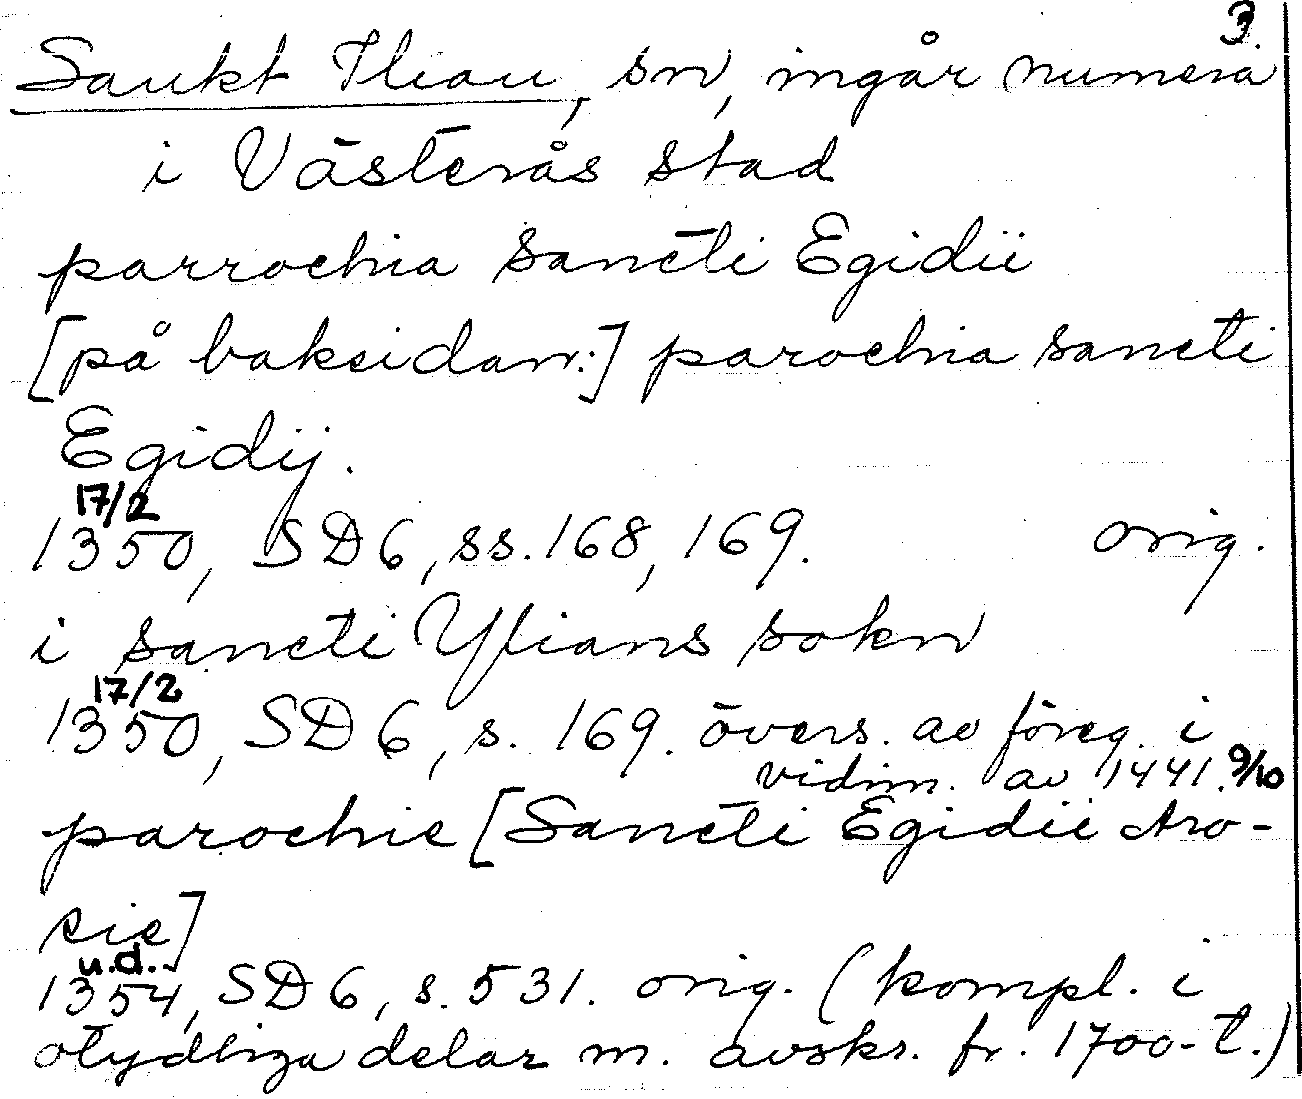 3.
Sankt Ilian, sn, ingår numera
i Västerås stad
parrochia sancti Egidii
[på baksidan:] parochia sancti
Egidij.
17/2
1350, SD 6, ss. 168, 169. orig.
i sancti Ylians sokn
17/2
1350, SD 6, s. 169. övers. av föreg. i
vidim. av 1441. 9/10
parochie [Sancti Egidii Aro-
sie]
u.d.
1354, SD 6, s. 531. orig. (kompl. i
otydliga delar m. avskr. fr. 1700-t.)